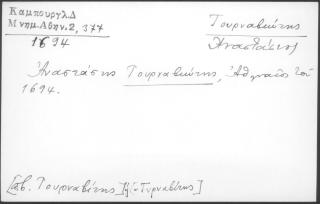 Καμπουργλ.Δ
Μνημ.Αθην.2, 377
1694
Τουρναβίτης
Αναστάσιος
Ἀναστάσης Τουρναβίτης, Ἀθηναῖος τοῦ
1694.
[πβ. Τουρναβίτης] [ἤ Τυρναβίτης]